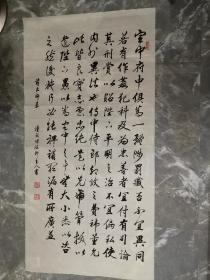 宫中府中俱爲一體陟罰臧否不宜異同
若有作奸犯科及爲忠善者宜付有司論
其刑賞以昭陛下平明之治不宜偏私使
内外異法也侍中侍郎郭攸之費禕董允
等此皆良實志慮忠純是以先帝簡拔以
遺陛下愚以爲宫中之事事無大小悉以咨
之然後施行必能裨補闕漏有所廣益
前出師表